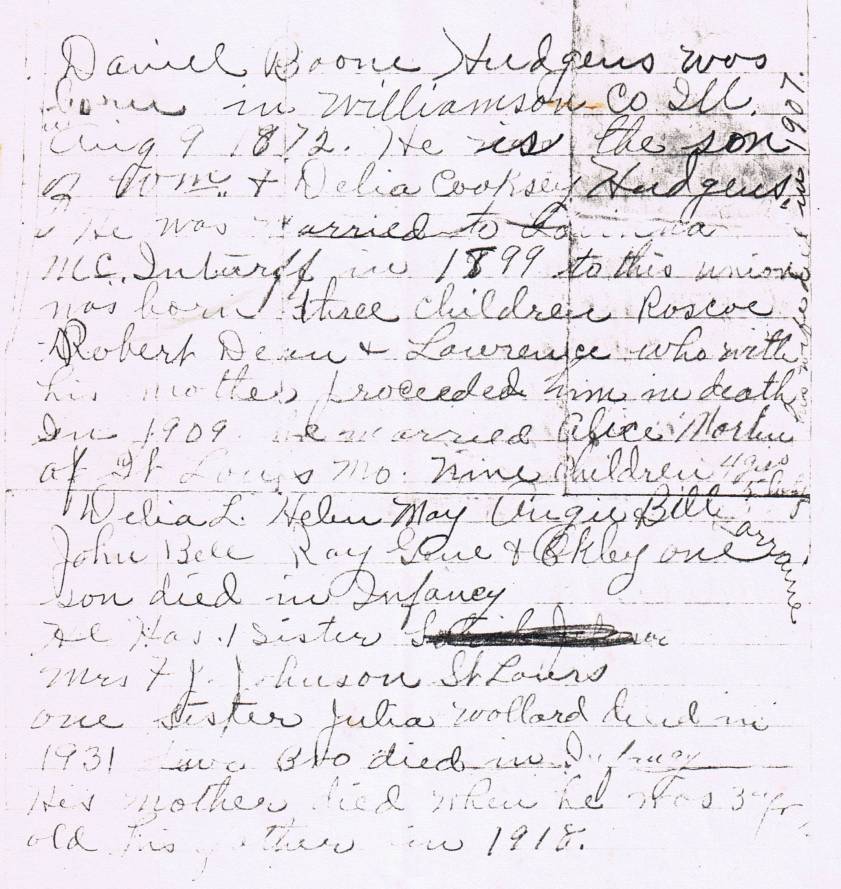 Daniel Boone Hudgens was
born in Williamson Co Ill.
Aug 9 1872. He is the son
of Wm & Delia Cooksey Hudgens
He was married to
Mc Inturff in 1899 to this union
was born three children Roscoe
Robert Dean & Lawrence who with
his mother proceeded him in death
In 1909 he married Alice Morlin
of St Louis Mo. Nine children
4 girls
5 boys
Delia L. Helen May Angie & Bell
Larraine
John Bell Ray Gene & Okley one
son died in Infancy
He Has 1 Sister
Mrs F J. Johnson St Louis
one sister Julia Wollard died in
1931 two Bro died in Infancy
His mother died when he was 3 yr
old his father in 1918.
his wife died in 1907.